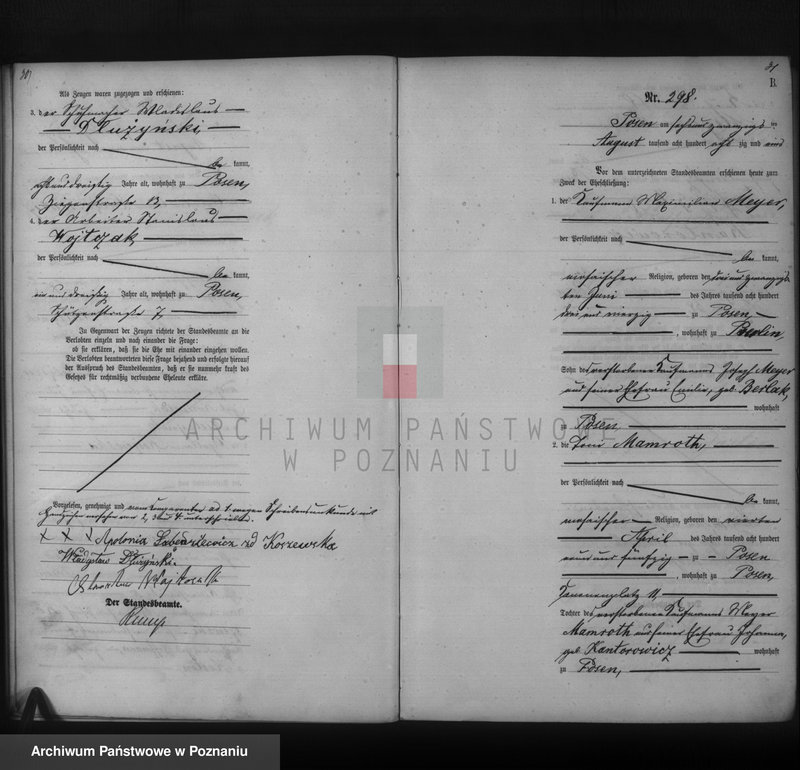 Als Zeugen waren zugezogen und erschienen:
3. der Schuhmacher Wladislaus
Dluzynski,
der Persönlichkeit nach
be kannt,
achtunddreißig Jahre alt, wohnhaft zu Posen,
4. der Arbeiter Stanislaus
Wojtczak,
der Persönlichkeit nach
be kannt,
Jahre alt, wohnhaft zu Posen,
Schützenstraße 7,
In Gegenwart der Zeugen richtete der Standesbeamte an die
Verlobten einzeln und nach einander die Frage:
ob sie erklären, daß sie die Ehe mit einander eingehen wollen.
Die Verlobten beantworteten diese Frage bejahend und erfolgte hierauf
der Ausspruch des Standesbeamten, daß er sie nunmehr kraft des
Gesetzes für rechtmäßig verbundene Eheleute erkläre.
Vorgelesen, genehmigt und
+ + + Apolonia
Der Standesbeamte.
31
B.
Nr. 298.
Posen am sechsundzwanzigsten
August tausend acht hundert acht zig und eins
Vor dem unterzeichneten Standesbeamten erschienen heute zum
Zweck der Eheschließung:
1. der Kaufmann Maximilian Meyer,
der Persönlichkeit nach
be kannt,
mosaischer Religion, geboren den dreiundzwanzig
sten Juni des Jahres tausend acht hundert
drei und vierzig zu Posen,
, wohnhaft zu Berlin,
Sohn des verstorbenen Kaufmanns Joseph Meyer
und seiner Ehefrau Emilie, geb. Berlak,
wohnhaft
zu Posen
2. die Mamroth,
der Persönlichkeit nach
be kannt,
mosaischer Religion, geboren den vierten
April des Jahres tausend acht hundert
neun und fünfzig zu Posen
, wohnhaft zu Posen,
Tochter des verstorbenen Kaufmanns Meyer
Mamroth und seiner Ehefrau Johanna,
geb. Kantorowicz wohnhaft
zu Posen,
ARCHIWUM PAŃSTWOWE
W POZNANIU
Archiwum Państwowe w Poznaniu